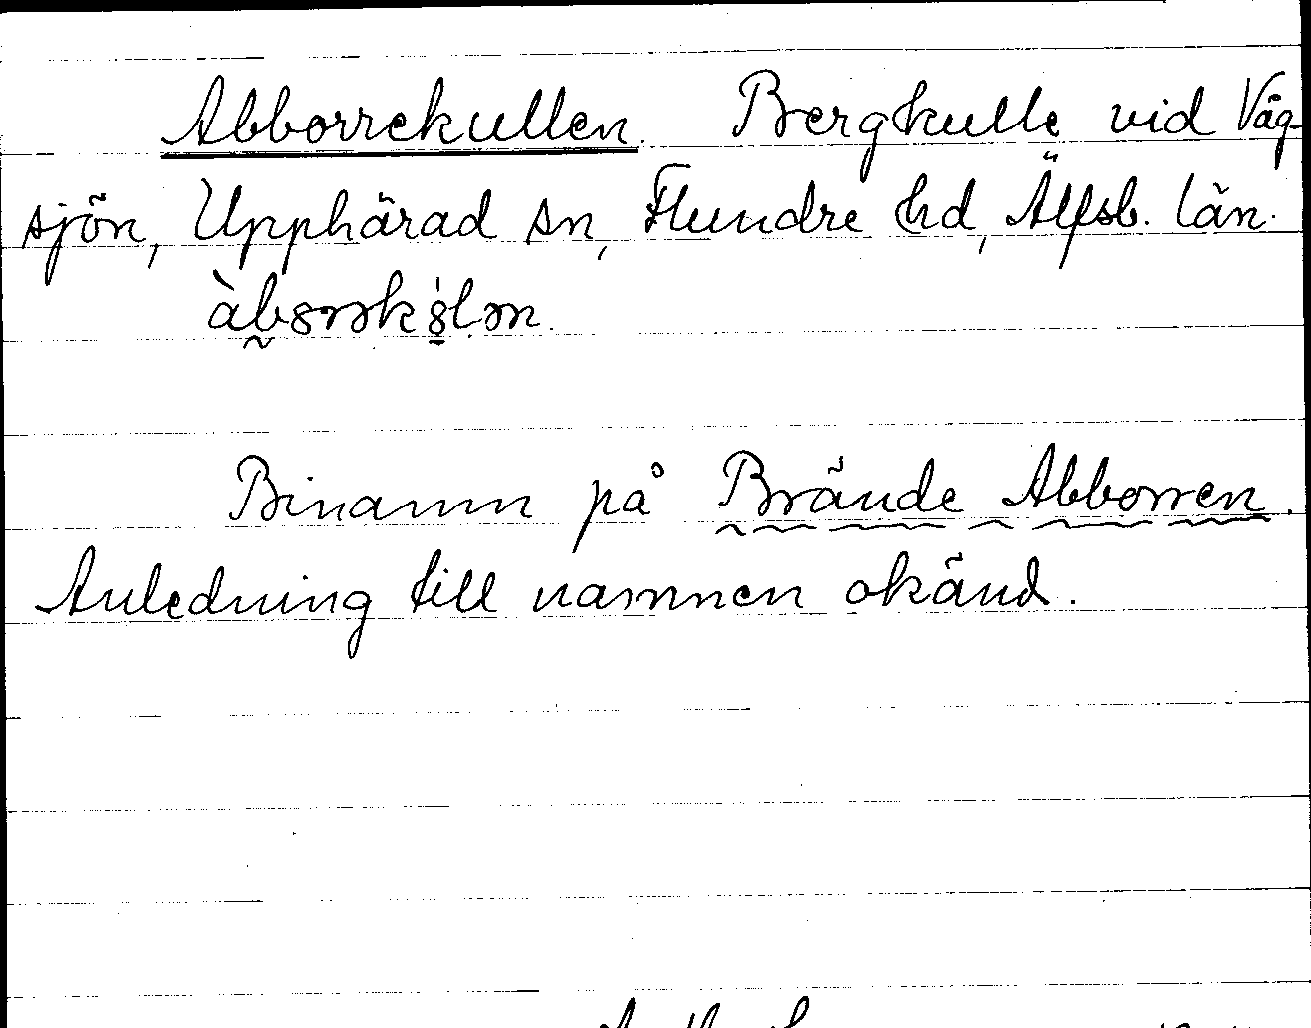 Abborrekullen. Bergkulle vid Våg-
sjön, Upphärad sn, Flundre hd, Älfsb. län.
Binamn på Brände Abborren.
Anledning till namnen okänd.